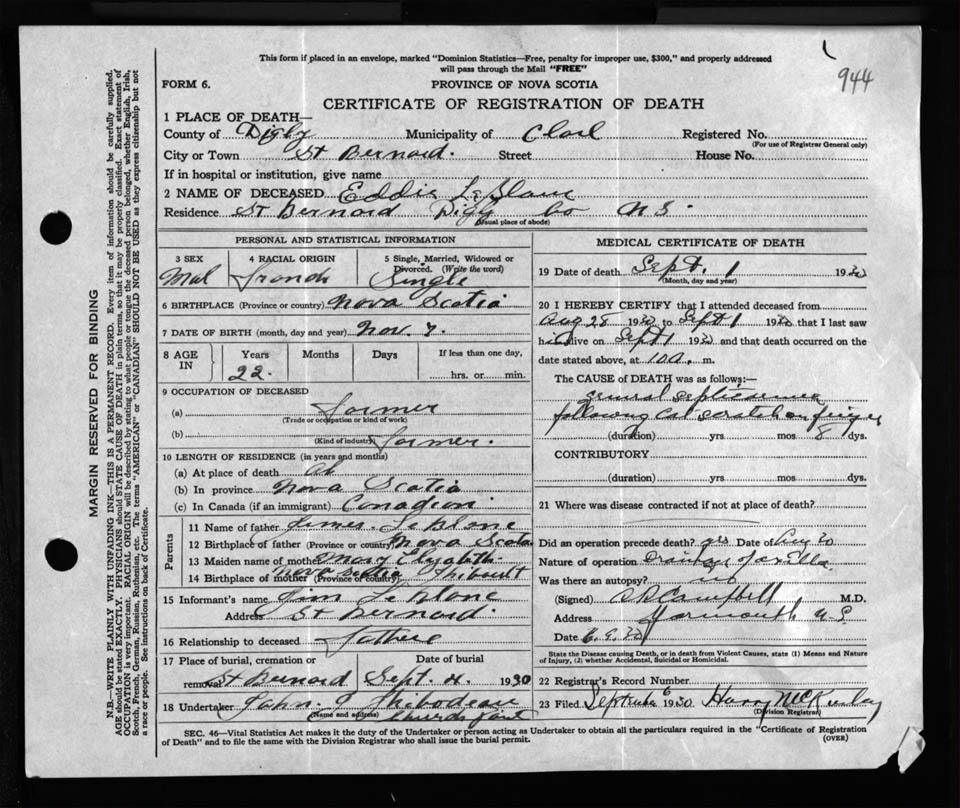 This form if placed in an envelope, marked "Dominion Statistics—Free, penalty for improper use, $300," and properly addressed
will pass through the Mail "FREE"
944
FORM 6.
PROVINCE OF NOVA SCOTIA
CERTIFICATE OF REGISTRATION OF DEATH
1 PLACE OF DEATH—
County of Digby Municipality of Clare Registered No.
(For use of Registrar General only)
City or Town St Bernard. Street House No.
If in hospital or institution, give name
2 NAME OF DECEASED Eddie LeBlanc
Residence St Bernard Digby Co N S.
(Usual place of abode)
PERSONAL AND STATISTICAL INFORMATION
3 SEX 4 RACIAL ORIGIN 5 Single, Married, Widowed or
Divorced. (Write the word)
Mal French Single
6 BIRTHPLACE (Province or country) Nova Scotia
7 DATE OF BIRTH (month, day and year) Nov. 7.
8 AGE IN Years Months Days If less than one day,
22. hrs. or min.
9 OCCUPATION OF DECEASED
(a) farmer
(Trade or occupation or kind of work)
(b) farmer.
(Kind of industry)
10 LENGTH OF RESIDENCE (in years and months)
(a) At place of death
(b) In province Nova Scotia
(c) In Canada (if an immigrant) Canadian
Parents
11 Name of father James LeBlanc
12 Birthplace of father (Province or country) Nova Scotia
13 Maiden name of mother Mary Elizabeth Thibault
14 Birthplace of mother (Province or country) Nova Scotia
15 Informant's name Jim LeBlanc
Address St Bernard.
16 Relationship to deceased father
17 Place of burial, cremation or Date of burial
removal St Bernard Sept. 4. 1930
18 Undertaker John J Thibodeau
(Name and address) Church Point
MEDICAL CERTIFICATE OF DEATH
19 Date of death Sept. 1 1930
(Month, day and year)
20 I HEREBY CERTIFY that I attended deceased from
Aug 28 1930 to Sept 1 1930 that I last saw
him alive on Sept 1 1930 and that death occurred on the
date stated above, at 10 a. m.
The CAUSE OF DEATH was as follows:—
General septicaemia
following cat scratch on finger
(duration) yrs. mos 8 dys.
CONTRIBUTORY
(duration) yrs. mos. dys.
21 Where was disease contracted if not at place of death?
Did an operation precede death? yes Date of Aug 30
Nature of operation Drainage axilla
Was there an autopsy? no
(Signed) Campbell M.D.
Address Yarmouth N.S.
Date 6.9.30
State the Disease causing Death, or in death from Violent Causes, state (1) Means and Nature
of Injury, (2) whether Accidental, Suicidal or Homicidal.
22 Registrar's Record Number
23 Filed September 6 1930 Harry McKinlay
(Division Registrar)
SEC. 46—Vital Statistics Act makes it the duty of the Undertaker or person acting as Undertaker to obtain all the particulars required in the "Certificate of Registration
of Death" and to file the same with the Division Registrar who shall issue the burial permit.
(OVER)
MARGIN RESERVED FOR BINDING
N.B.—WRITE PLAINLY WITH UNFADING INK—THIS IS A PERMANENT RECORD. Every item of information should be carefully supplied.
AGE should be stated EXACTLY. PHYSICIANS should STATE CAUSE OF DEATH in plain terms, so that it may be properly classified. Exact statement of
OCCUPATION is very important. RACIAL ORIGIN will be described by stating to what people or tongue the deceased person belonged, whether English, Irish,
Scotch, French, German, Russian, Ruthenian, etc. The terms "AMERICAN" or "CANADIAN" SHOULD NOT BE USED as they express citizenship but not
a race or people. See instructions on back of Certificate.